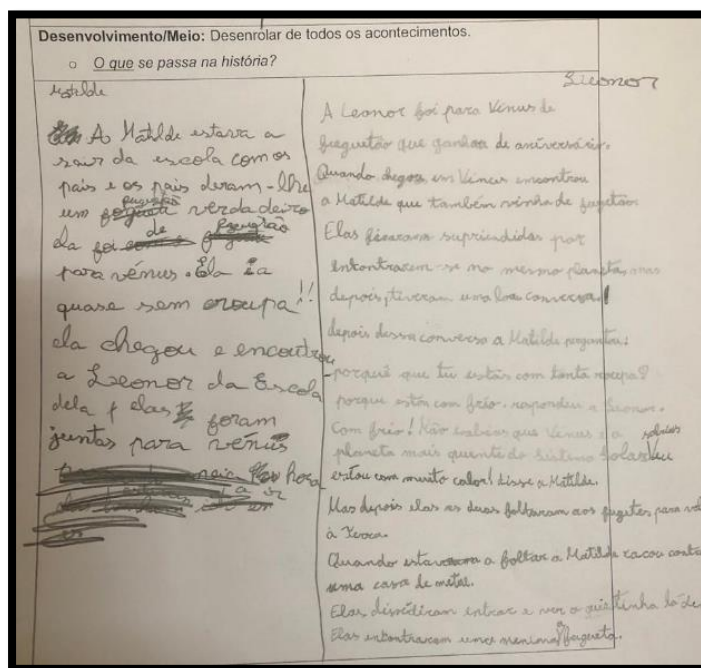 Desenvolvimento/Meio: Desenrolar de todos os acontecimentos.
o O que se passa na história?
Matilde
A Matilde estava a
sair da escola com os
pais e os pais deram-lhe
um fugetão verdadeiro
ela foi de
para vénus. Ela ia
quase sem oroupa!!
ela chegou e encontrou
a Leonor da Escola
dela e elas foram
juntas para vénus
hora
Leonor
A Leonor foi para Vénus de
fuguetão que ganhou de aniversário.
Quando chegou em Vénus encontrou
a Matilde que também vinha de fugetão
Elas ficaram supriendidas por
entontrarem-se no mesmo planeta, mas
depois, tiveram uma boa conversa.
depois dessa conversa a Matilde perguntou:
-porquê que tu estás com tanta roupa?
porque estou com frio. respondeu a Leonor.
Com frio! Não sabias que Vénus é o
planeta mais quente do Sistema Solar eu
estou com muito calor! disse a Matilde.
Mas depois elas as duas foltaram aos fugetes para
à Terra.
Quando estavam a foltar a Matilde
uma casa de metal.
Elas dissidiram entrar e ver o que tinha lá
Elas entontraram uma menina